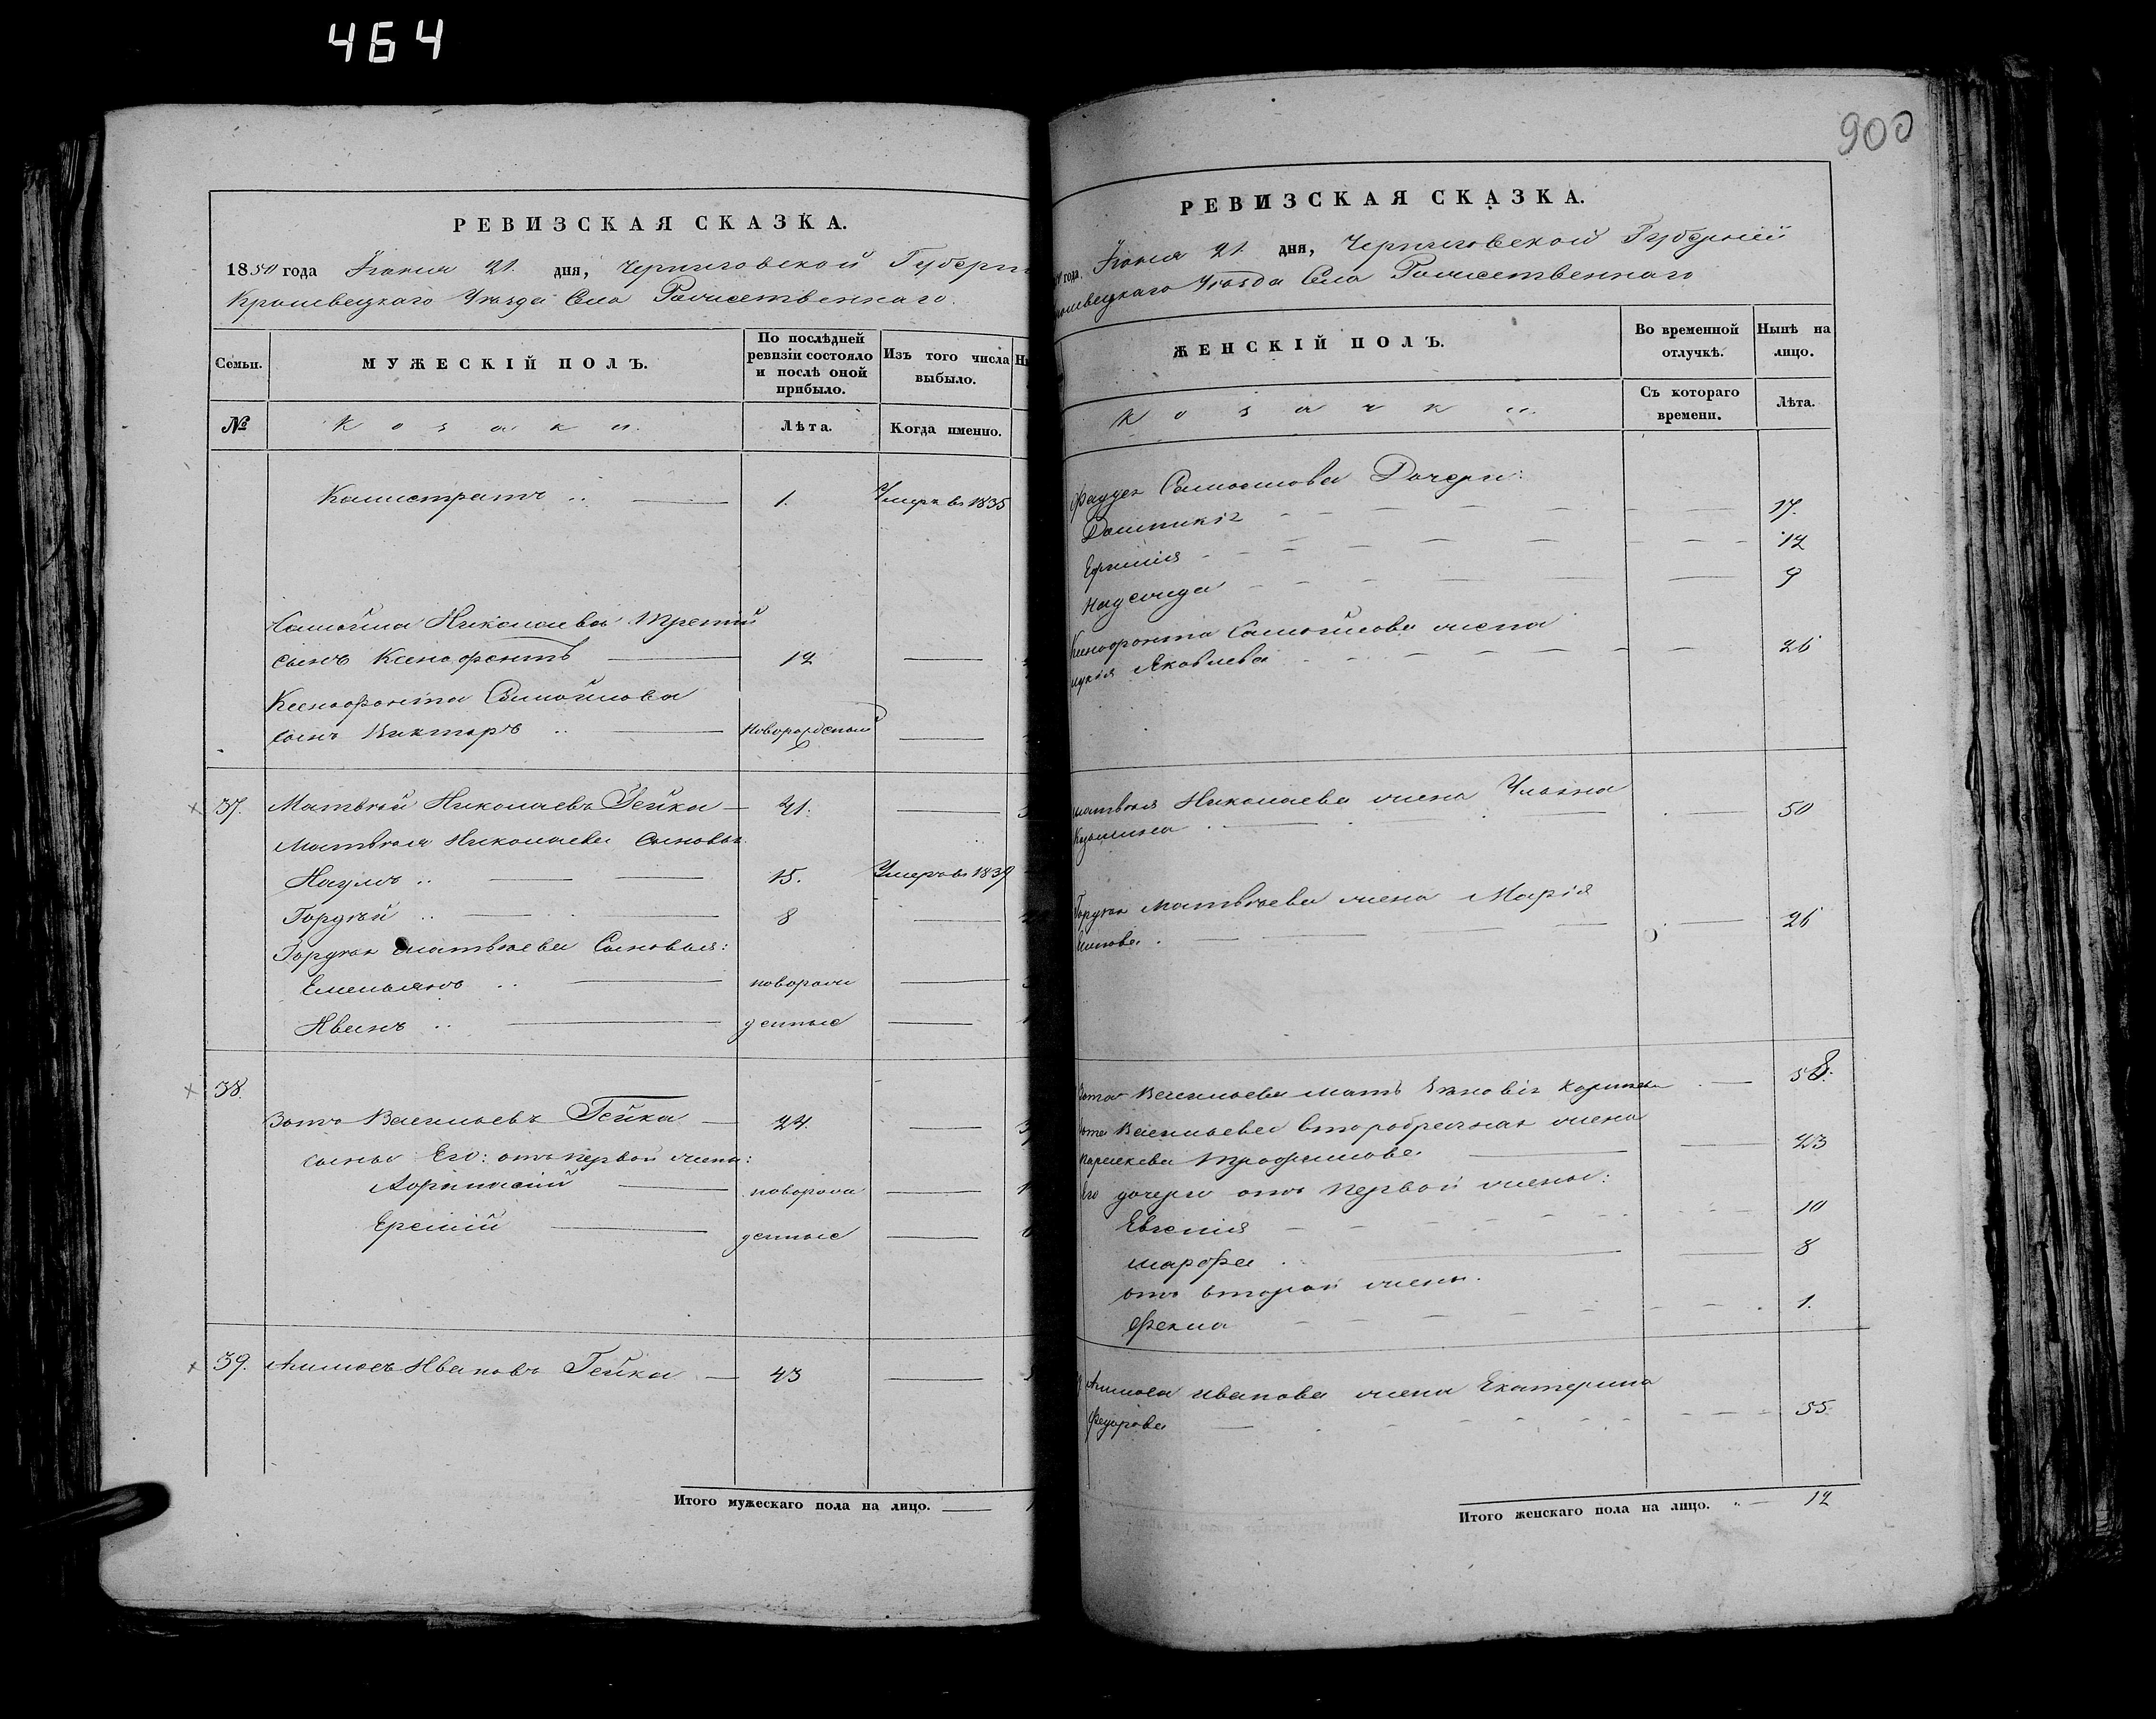 464
РЕВИЗСКАЯ СКАЗКА.
1850 года Іюня 21 дня, Черниговской Губерн
Кролевецкаго Уѣзда Села Рожественнаго.
Семьи. МУЖЕСКІЙ ПОЛЪ. По послѣдней ревизіи состояло и послѣ оной прибыло. Изъ того числа выбыло.
№ Козаки. Лѣта. Когда именно.
Калистратъ 1. Умеръ въ 1835
Самойла Николаева Третій
сынъ Ксенофонтъ 12
Ксенофонта Самойлова
сынъ Викторъ новорожденый
37. Матвѣй Николаевъ Гейка 41.
Матвѣя Николаева сыновья
Наумъ 15. Умеръ въ 1839
Гордѣй 8
Гордѣя Матвѣева сыновья:
Емельянъ новорож
Иванъ денные
38.
Зотъ Васильевъ Гейка 24.
сыны Его: отъ первой жены:
Афанасій новорож
Еремій денные
39. Аммосъ Ивановъ Гейка 43
Итого мужескаго пола на лицо.
900
РЕВИЗСКАЯ СКАЗКА.
года Іюня 21 дня, Черниговской Губерніи
ролевецкаго Уѣзда Села Рожественнаго
ЖЕНСКІЙ ПОЛЪ. Во временной отлучкѣ. Нынѣ на лицо.
Козачки. Съ котораго времени. Лѣта.
Фаддея Самойлова Дочери:
Домникія 17.
Ефимія 12
Надежда 9
Ксенофонта Самойлова жена
Яковлева 26
Матвѣя Николаева жена Ульяна
Кузьмина 50
Гордѣя Матвѣева жена Марія
26
Зота Васильева мать Зѣновія 58.
Зота Васильева второбрачная жена
Параскева Трофимова 23
Его дочери отъ первой жены:
Евгенія 10
Марфа 8
отъ второй жены.
Фекла 1.
Аммоса Иванова жена Екатерина
Федорова 55.
Итого женскаго пола на лицо. 12